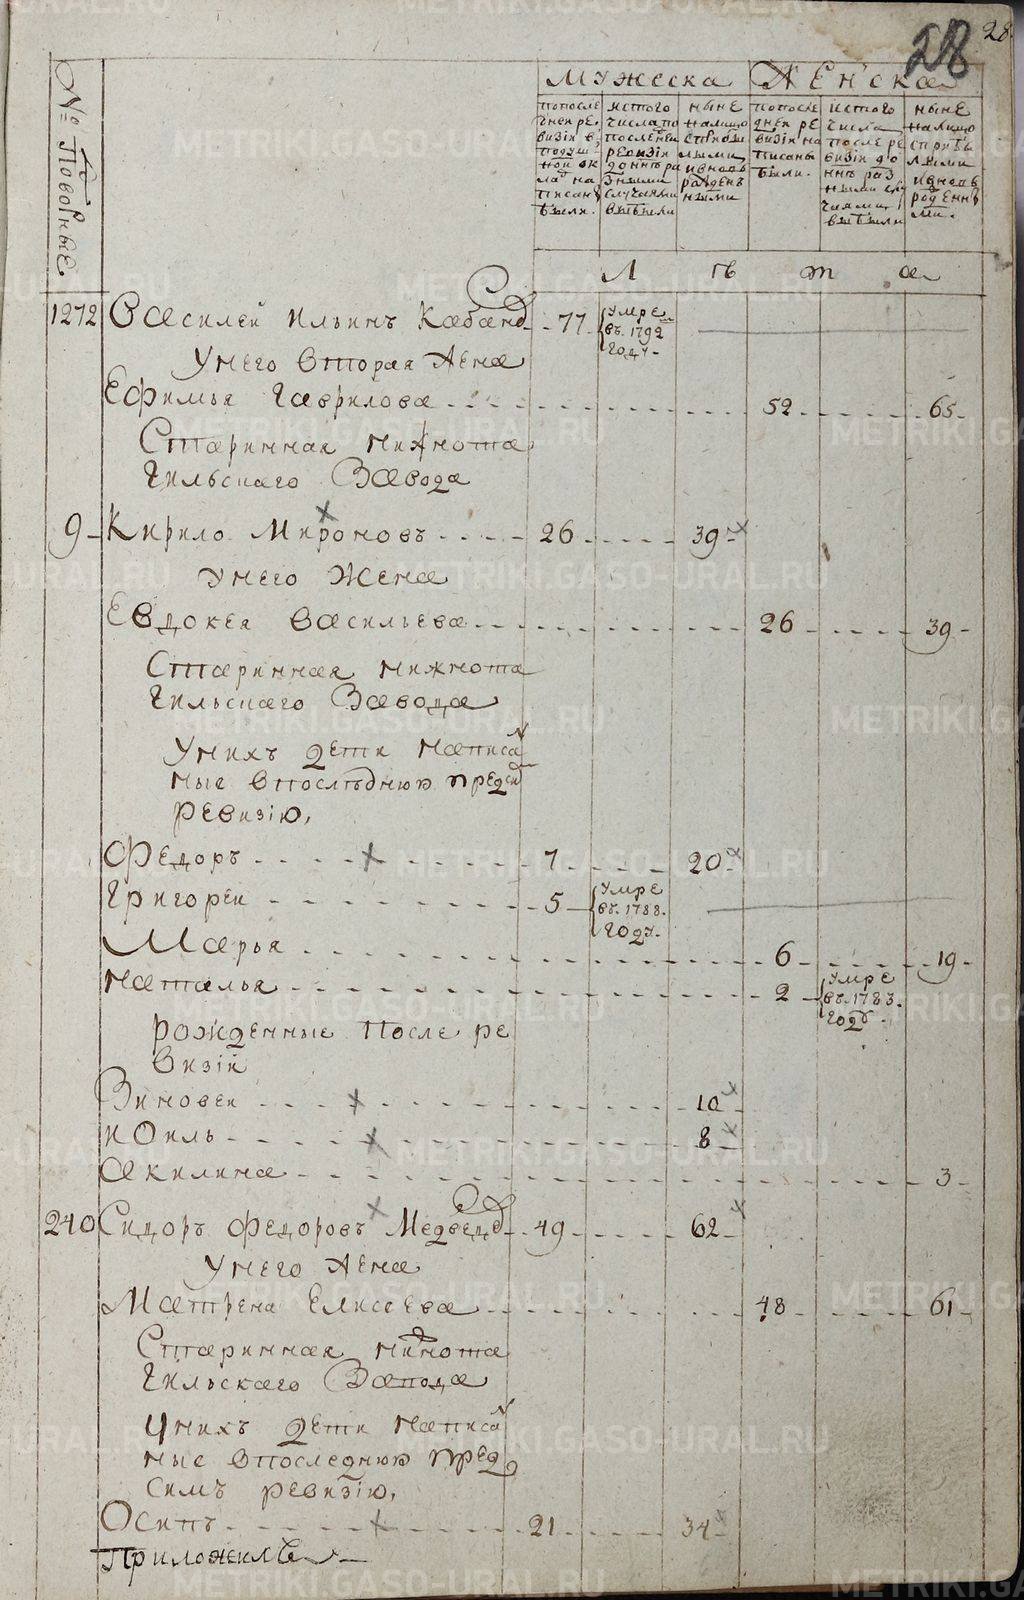 28
28
№ Поворные
Мужеска
Женска
попосле
дней ре
визіи в
подуш
ной ок
лад на
писан
были.
изтого
числа по
после ней
ревизіи
до ннѣ ра
зными
случаями
выбыли
ныне
налицо
с прибы
лыми
и вновь
рожден
ными
попосле
дней ре
визіи на
писаны
были.
изтого
числа
после ре
визіи до
ннѣ раз
ными слу
чаями
выбыли
ныне
налицо
с прибы
лыми
и вновь
рожденны
ми.
Л ѣ т а
1272 Василей Ильинъ Кабанов 77 Умре въ 1792 году
У него вторая жена
Ефимья Гаврилова 52 65
Старинная нижнота
гильскаго Завода
9 Кирило Мироновъ 26 39
У него жена
Евдокея Васильева 26 39
Старинная нижнота
гильскаго Завода
У нихъ дети написан
ные в последнюю пред сей
ревизію,
Федоръ 7 20
Григорей 5 Умре въ 1788 году
Марья 6 19
Наталья 2 Умре въ 1783 году
рожденные после ре
визіи
Зиновеи 10
Иоиль 8
Акилина 3
240 Сидоръ Федоровъ Медведев 49 62
У него жена
Матрена Елисеева 48 61
Старинная нижнота
гильскаго Завода
У нихъ дети написан
ные в последнюю пред
симъ ревизію,
Осипъ 21 34
Приложилъ
METRIKI.GASO-URAL.RU